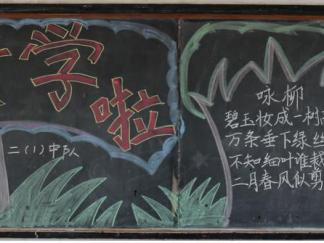 学啦
二(1)中队
咏柳
碧玉妆成一树
万条垂下绿丝
不知细叶谁裁
二月春风似剪